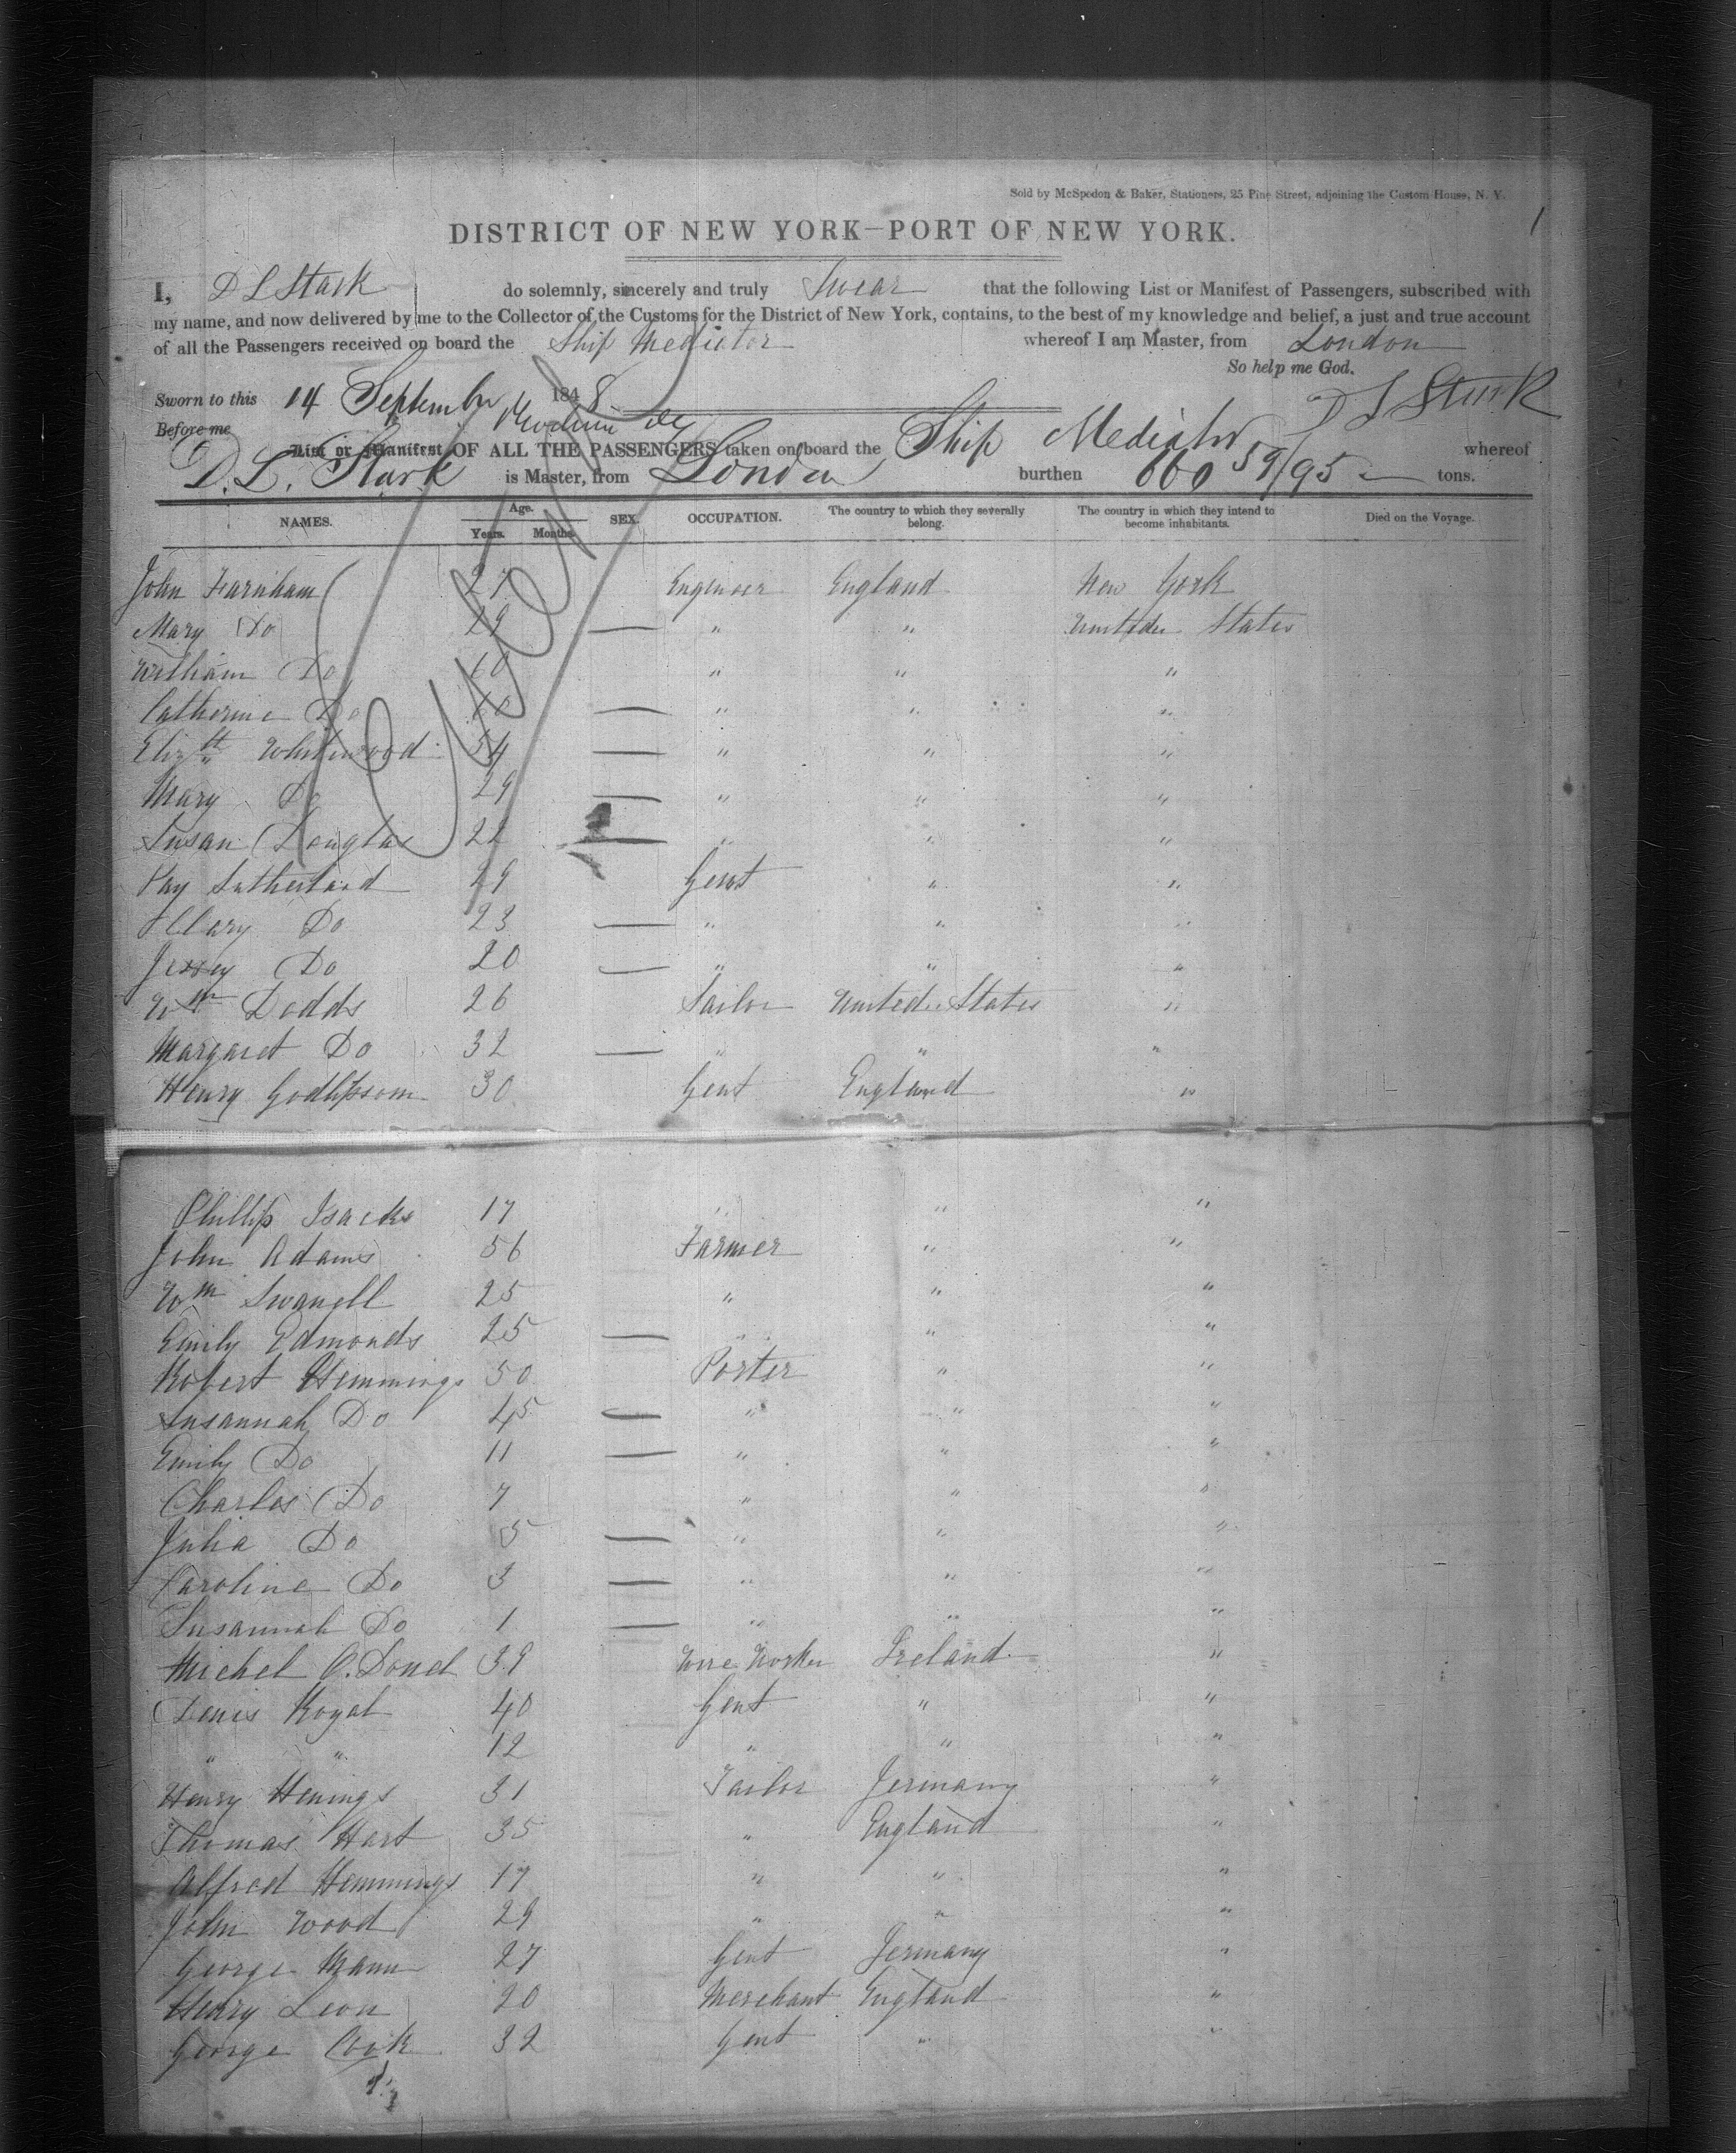 Sold by McSpedon & Baker, Stationers, 25 Pine Street, adjoining the Custom House, N. Y.
1
DISTRICT OF NEW YORK—PORT OF NEW YORK.
I, D L Stark do solemnly, sincerely and truly Swear that the following List or Manifest of Passengers, subscribed with
my name, and now delivered by me to the Collector of the Customs for the District of New York, contains, to the best of my knowledge and belief, a just and true account
of all the Passengers received on board the Ship Mediator whereof I am Master, from London
So help me God.
Sworn to this 14 September 1848 D L Stark
Before me
List or Manifest OF ALL THE PASSENGERS taken on board the Ship Mediator whereof
D. L. Stark is Master, from London burthen 660 59/95 tons.
NAMES. Age. Years. Months. SEX. OCCUPATION. The country to which they severally belong. The country in which they intend to become inhabitants. Died on the Voyage.
John Farnham 27 Engineer England New York
Mary Do 29 — " " United States
William Do 60 " " "
Catherine Do 60 — " " "
Elizth Whitewood 54 — " " "
Mary Do 29 — " " "
Susan Douglas 22 — " " "
Sutherland 29 Gent " "
Mary Do 23 — " " "
Jessey Do 20 — " " "
Wm Dodds 26 Tailor United States "
Margaret Do 32 — " " "
Henry 30 Gent England "
Phillip Isacks 17 " " "
John Adams 56 Farmer " "
Wm Swanell 25 " " "
Emily Edmonds 25 — " " "
Robert Hemmings 50 Porter " "
Susannah Do 45 — " " "
Emily Do 11 — " " "
Charles Do 7 " " "
Julia Do 5 — " " "
Caroline Do 3 — " " "
Susannah Do 1 — " " "
Michel O. Donel 39 Wire Worker Ireland "
Denis Royal 40 Gent " "
" " 12 " " "
Henry Henings 31 Tailor Jermany "
Thomas Hart 35 " England "
Alfred Hemmings 17 " " "
John Wood 29 " " "
George Mann 27 Gent Jermany "
Henry Leon 20 Merchant England "
George Cook 32 Gent " "